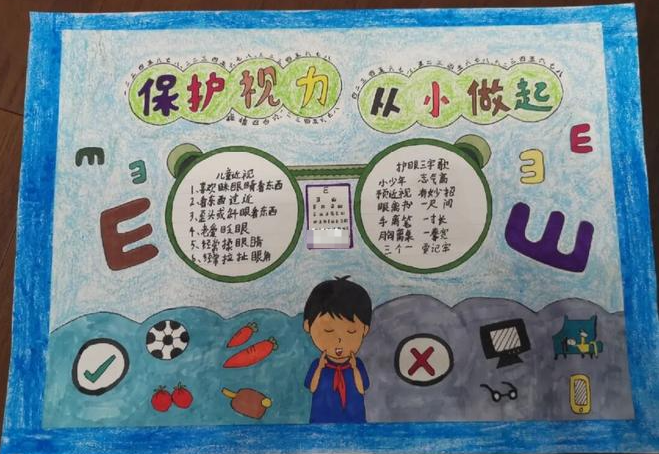 保护视力 从小做起
儿童近视
1、喜欢眯眼睛看东西
2、看东西过近
3、歪头或斜眼看东西
4、老爱眨眼
5、经常揉眼睛
6、经常拉扯眼角
护眼三字歌
小少年 志气高
预近视 有妙招
眼离书 一尺间
手离笔 一寸长
胸离桌 一拳宽
三个一 要记牢
E
E
E
E
E
E